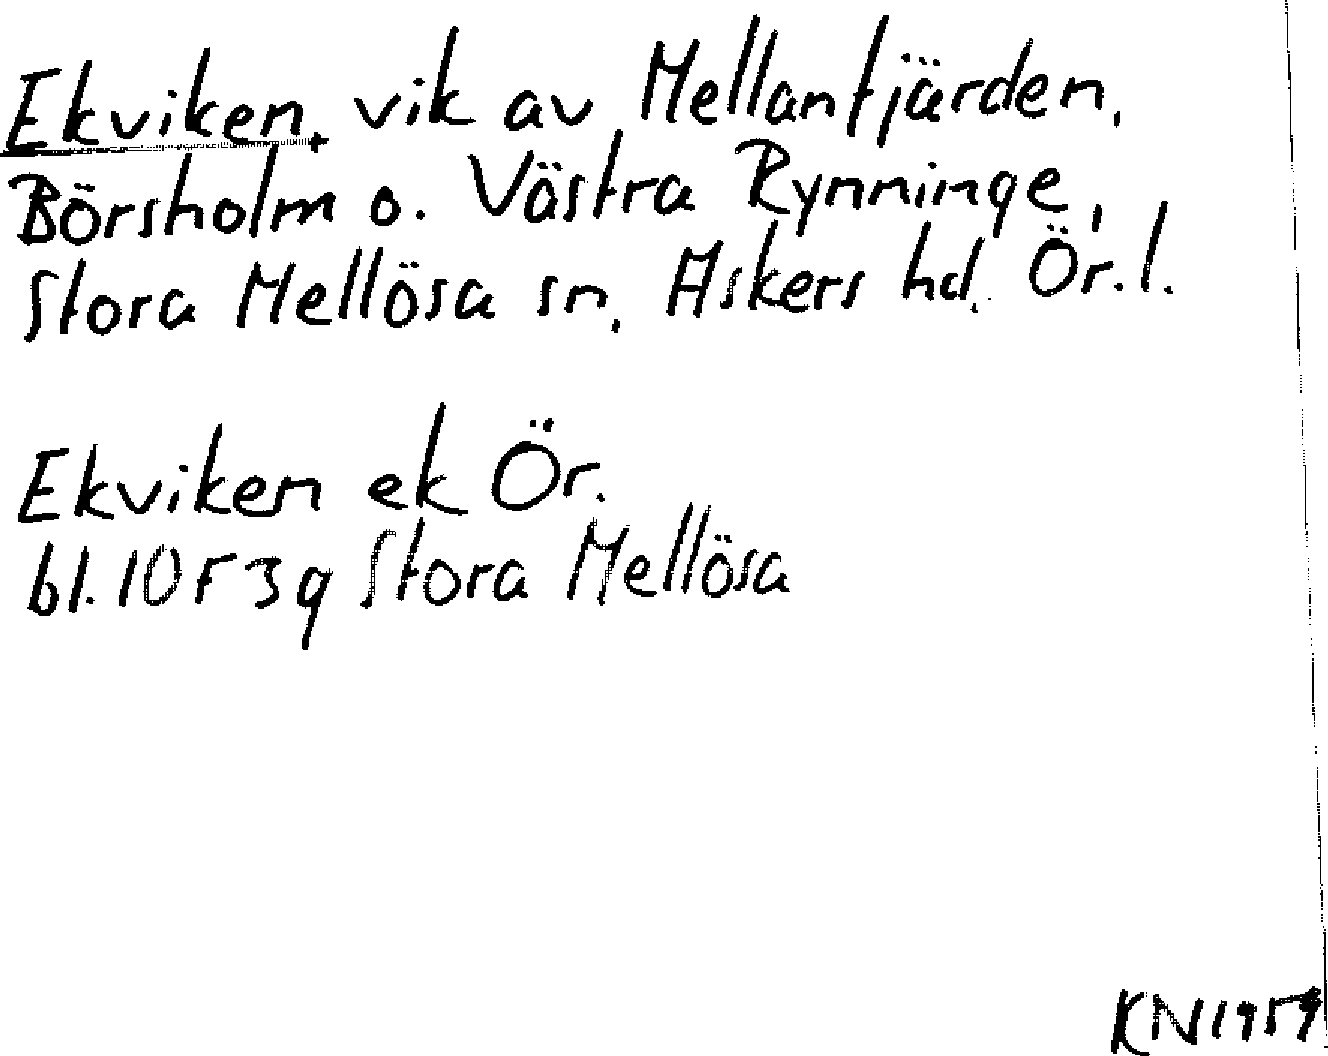 Ekviken, vik av Mellanfjärden,
Börsholm o. Västra Rynninge,
Stora Mellösa sn, Askers hd. Ör. l.
Ekviken ek Ör.
bl. 10 F 3 g Stora Mellösa
KN 1959